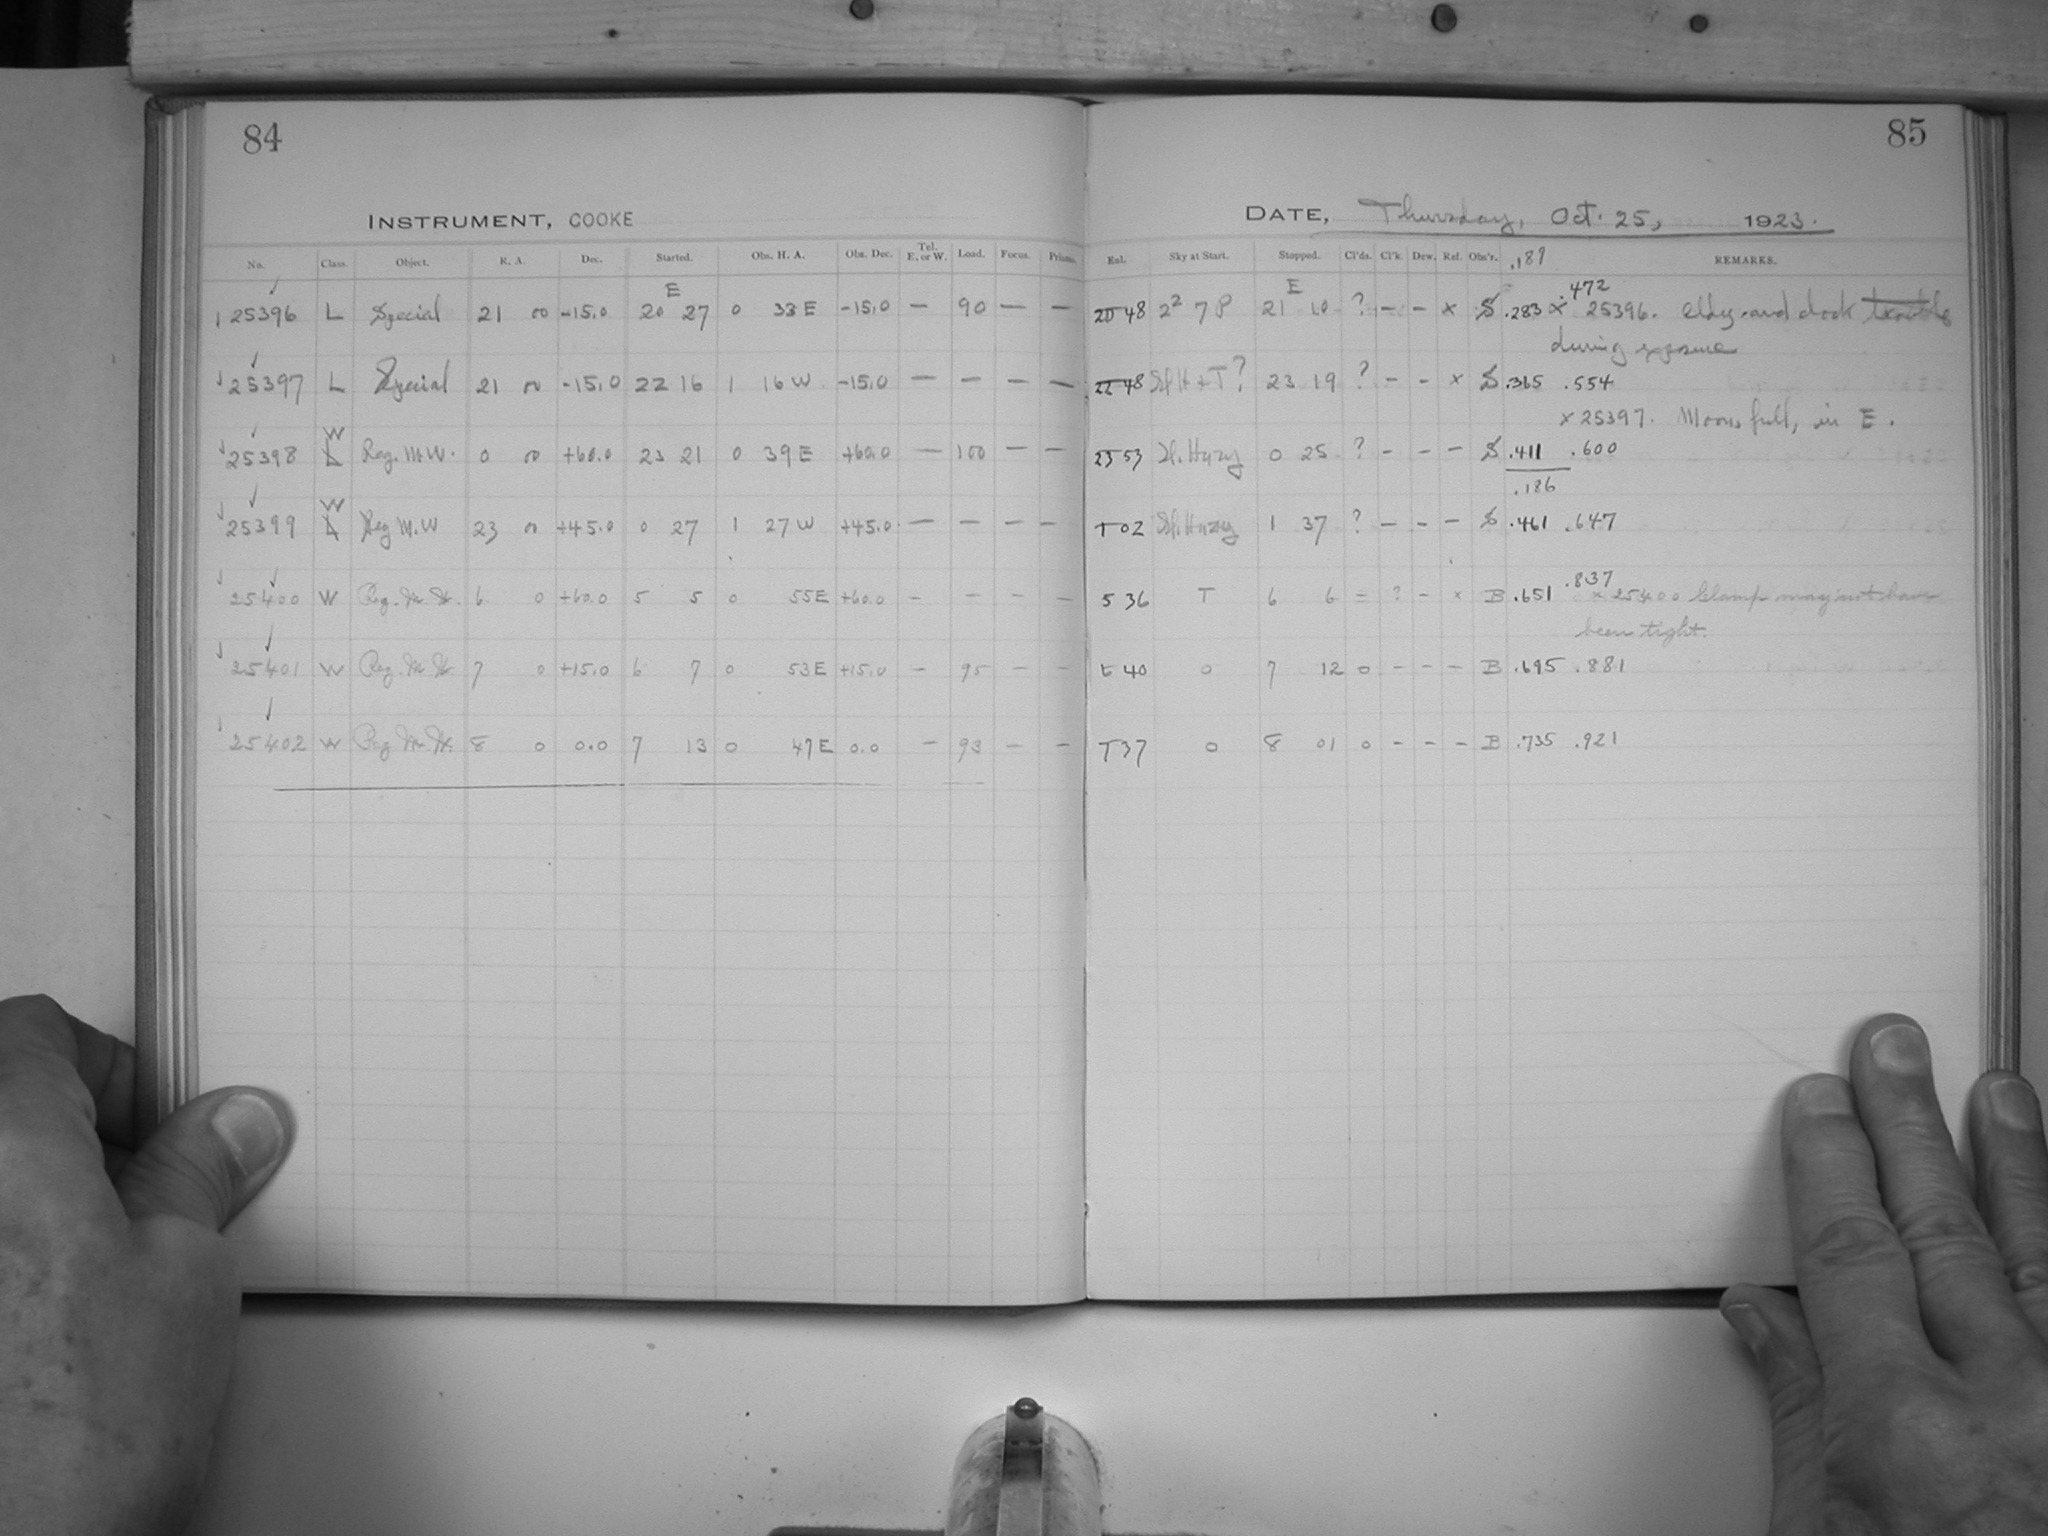 84
85
INSTRUMENT, COOKE
DATE, Thursday, Oct. 25, 1923.
No. Class. Object. R. A. Dec. Started. Obs. H. A. Obs. Dec. Tel. E. or W. Load. Focus. Prisms. Enl. Sky at Start. Stopped. Cl'ds. Cl'k. Dew. Ref. Obs'r. .189 REMARKS.
E E .472
25396 L Special 21 00 -15.0 20 27 0 33 E -15.0 — 90 — — 20 48 2² 7 P 21 10 ? — — x S .283 x 25396. Cldy. and clock trouble
during exposure
25397 L Special 21 00 -15.0 22 16 1 16 W -15.0 — — — — 22 48 Sl. H + T? 23 19 ? - - x S .365 .554
x 25397. Moon, full, in E.
W
25398 L Reg. M.W. 0 00 +60.0 23 21 0 39 E +60.0 — 100 — — 23 53 Sl. Hazy 0 25 ? - - — S .411 .600
.186
W
25399 L Reg M.W 23 00 +45.0 0 27 1 27 W +45.0 — — — — 1 02 Sl. Hazy 1 37 ? — — — S .461 .647
.837
25400 W Reg. M. W. 6 0 +60.0 5 5 0 55 E +60.0 - - - - 5 36 T 6 6 = ? - x B .651 x 25400 Clamp may not have
been tight.
25401 W Reg. M. W. 7 0 +15.0 6 7 0 53 E +15.0 - 95 - - 6 40 0 7 12 0 - - - B .695 .881
25402 W Reg. M. W. 8 0 0.0 7 13 0 47 E 0.0 - 93 - - 7 37 0 8 01 0 - - - B .735 .921